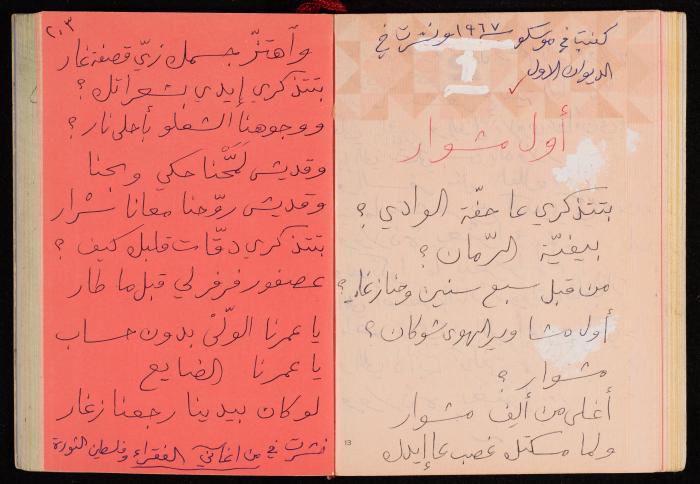 كتبت في موسكو ١٩٦٧ ونشرت في
الديوان الاول
1
أول مشوار
بتتذكري عا حفّة الوادي؟
بيفيّة الرّمان؟
من قبل سبع سنين وحنا زغار؟
أول مشاوير الهوى شو كان؟
مشوار؟
أغلى من ألف مشوار
ولما مسكتك غصب عا إيدك
13
٢٠٣
وأهتزّ جسمك زيّ قصفة غار
بتتذكري إيدي بشعراتك؟
ووجوهنا الشعلو بأحلى نار؟
وقديش لمّحنا حكي وبحنا
وقديش روّحنا معانا سرار
بتتذكري دقّات قلبك كيف؟
عصفور فرفر لي قبل ما طار
يا عمرنا الولّى بدون حساب
يا عمرنا الضايع
لو كان بيدينا رجعنا زغار
نشرت في من اغاني الفقراء وفلسطين الثورة